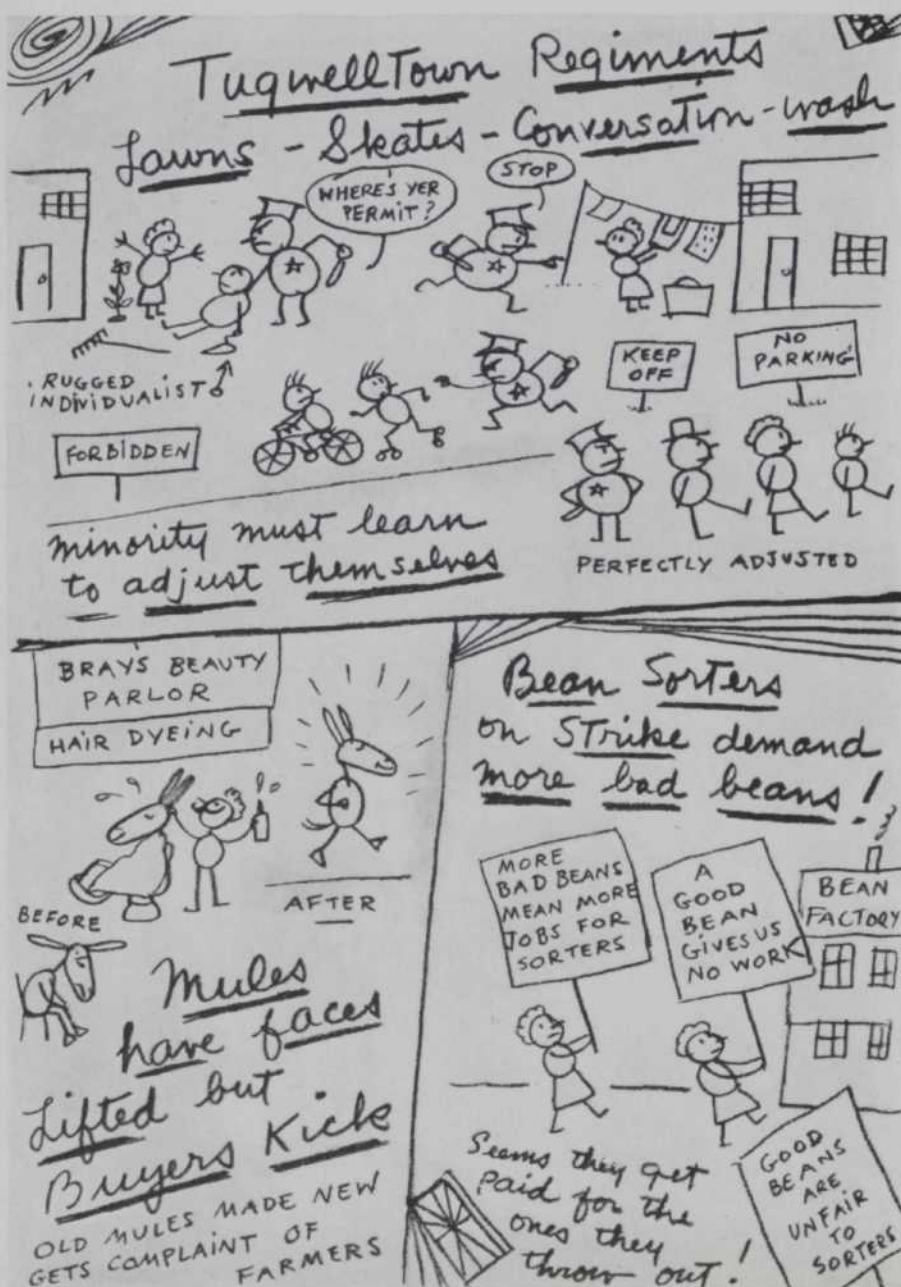 TugwellTown Regiments
Lawns - Skates - Conversation - wash
WHERE'S YER
PERMIT?
STOP
RUGGED
INDIVIDUALIST
KEEP
OFF
NO
PARKING
FORBIDDEN
minority must learn
to adjust themselves
PERFECTLY ADJUSTED
BRAYS BEAUTY
PARLOR
HAIR DYEING
BEFORE
AFTER
Mules
have faces
Lifted but
Buyers Kick
OLD MULES MADE NEW
GETS COMPLAINT OF
FARMERS
Bean Sorters
on STrike demand
more bad beans!
MORE
BAD BEANS
MEAN MORE
JOBS FOR
SORTERS
A
GOOD
BEAN
GIVES US
NO WORK
BEAN
FACTORY
Seems they get
paid for the
ones they
throw out!
GOOD
BEANS
ARE
UNFAIR
TO
SORTERS